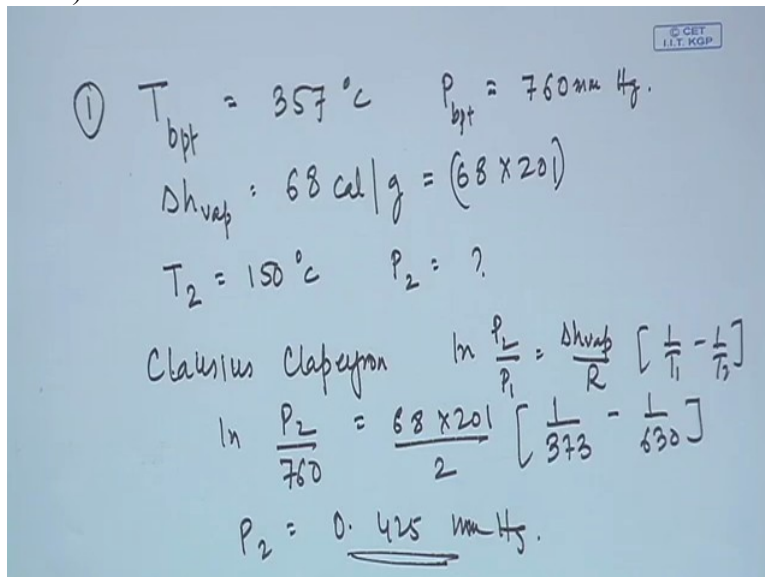 © CET
I.I.T. KGP
① T_bpt = 357 °C P_bpt = 760 mm Hg.
Δh_vap : 68 cal/g = (68 × 201)
T_2 = 150 °C P_2 = ?
Clausius Clapeyron ln P_2/P_1 = Δh_vap/R [1/T_1 - 1/T_2]
ln P_2/760 = 68 × 201/2 [1/373 - 1/630]
P_2 = 0.425 mm Hg.